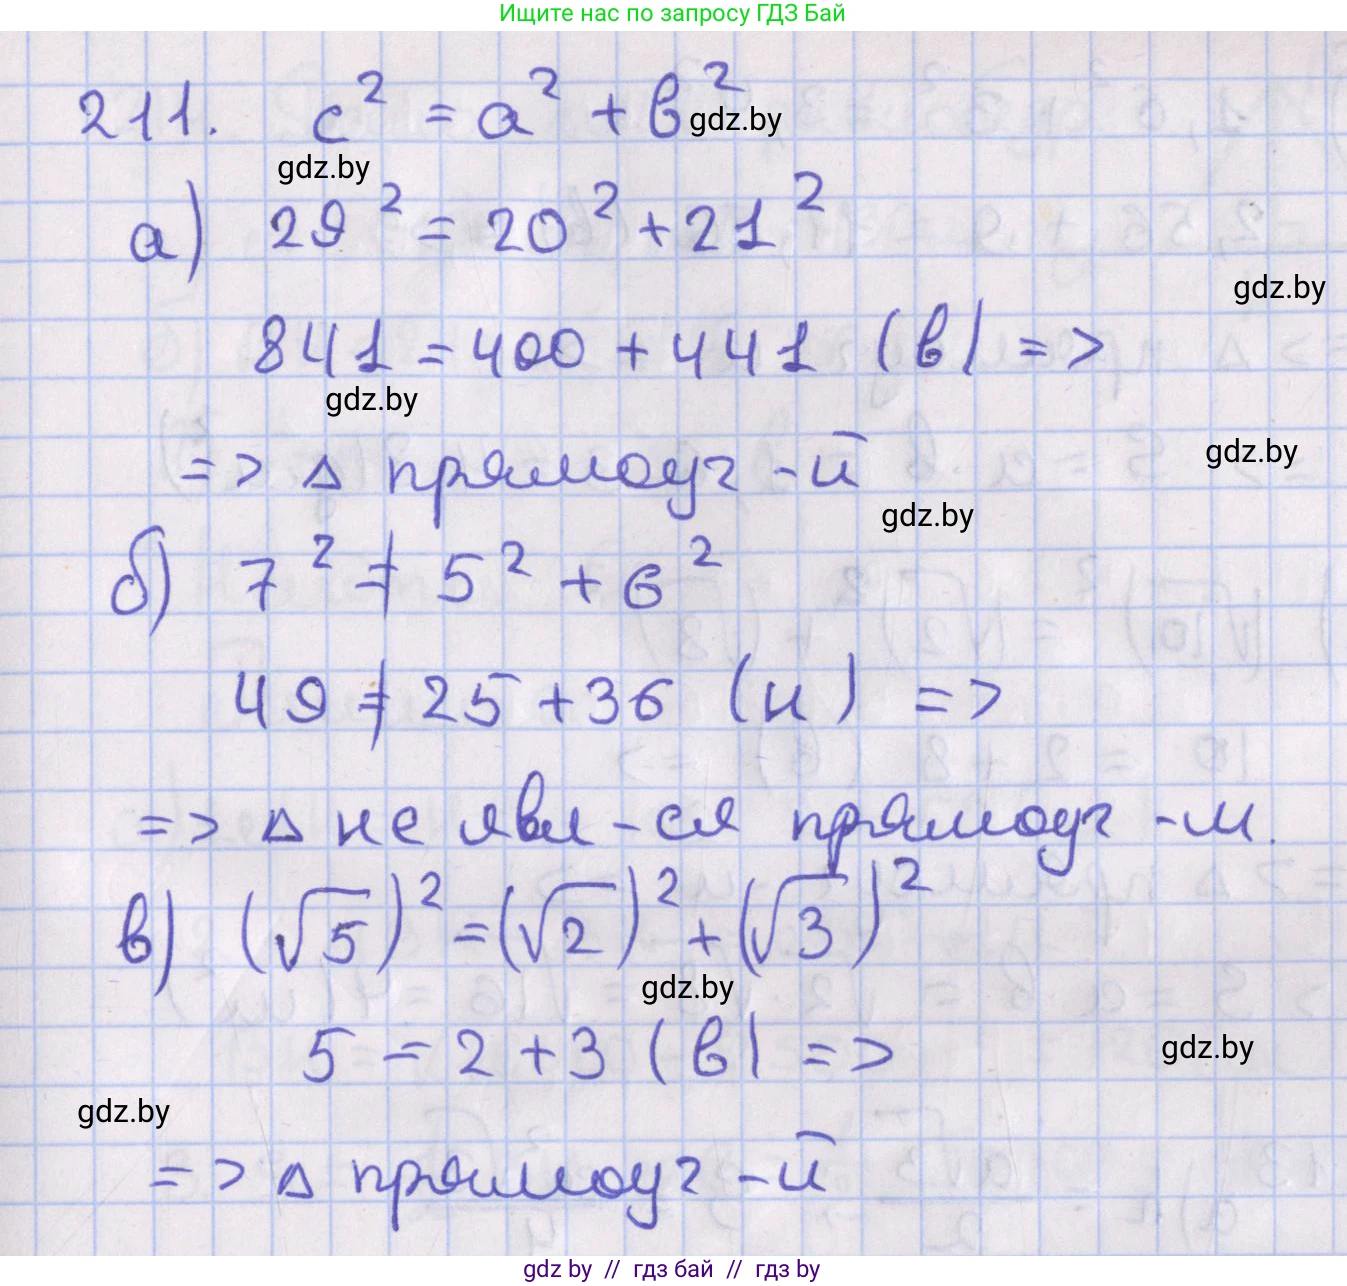 Ищите нас по запросу ГДЗ Бай
211. c² = a² + b²
gdz.by
gdz.by
а) 29² = 20² + 21²
gdz.by
841 = 400 + 441 (в) =>
gdz.by
=> Δ прямоуг-й
gdz.by
gdz.by
б) 7² ≠ 5² + 6²
49 ≠ 25 + 36 (н) =>
=> Δ не явл-ся прямоуг-м.
в) (√5)² = (√2)² + (√3)²
gdz.by
5 = 2 + 3 (в) =>
gdz.by
gdz.by
=> Δ прямоуг-й
gdz by // гдз бай // гдз by